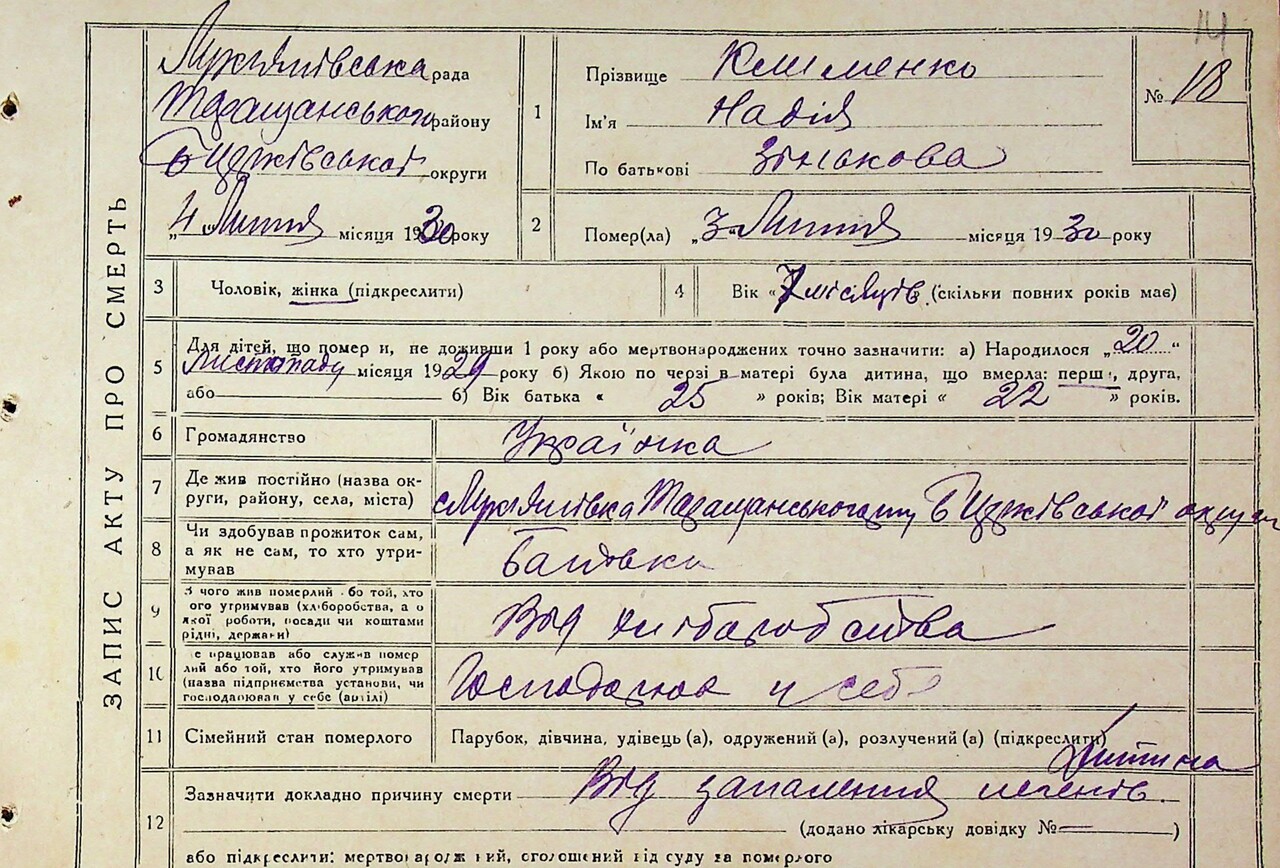 14
Лук'янівська рада
Таращанського району
Б Церківської округи
„4" Лютня місяця 1930 року
1
Прізвище Клименко
Ім'я Надія
По батькові Зінькова
№ 18
2
Помер(ла) „3" Лютня місяця 1930 року
ЗАПИС АКТУ ПРО СМЕРТЬ
3
Чоловік, жінка (підкреслити)
4
Вік « місяців. (скільки повних років має)
5
Для дітей, що померли, не доживши 1 року або мертвонароджених точно зазначити: а) Народилося „20"
Листопаду місяця 1929 року б) Якою по черзі в матері була дитина, що вмерла: перша, друга,
або б) Вік батька « 25 » років; Вік матері « 22 » років.
6
Громадянство
Українка
7
Де жив постійно (назва ок-
руги, району, села, міста)
с Лук'янівка Таращанського Б Церківської округи
8
Чи здобував прожиток сам,
а як не сам, то хто утри-
мував
Батьки
9
З чого жив померлий або той, хто
його утримував (хліборобства, а о
якої роботи, посади чи коштами
рідні, держави)
Від хліборобства
10
е працював або служив помер
лий або той, хто його утримував
(назва підприємства установи, чи
господарював у себе (артілі)
Господарює у себе
11
Сімейний стан померлого
Парубок, дівчина, удівець (а), одружений (а), розлучений (а) (підкреслити)
Дитина
12
Зазначити докладно причину смерти Від запалення легенів.
(додано лікарську довідку № )
або підкреслити: мертвонароджений, оголошений від суду за померлого